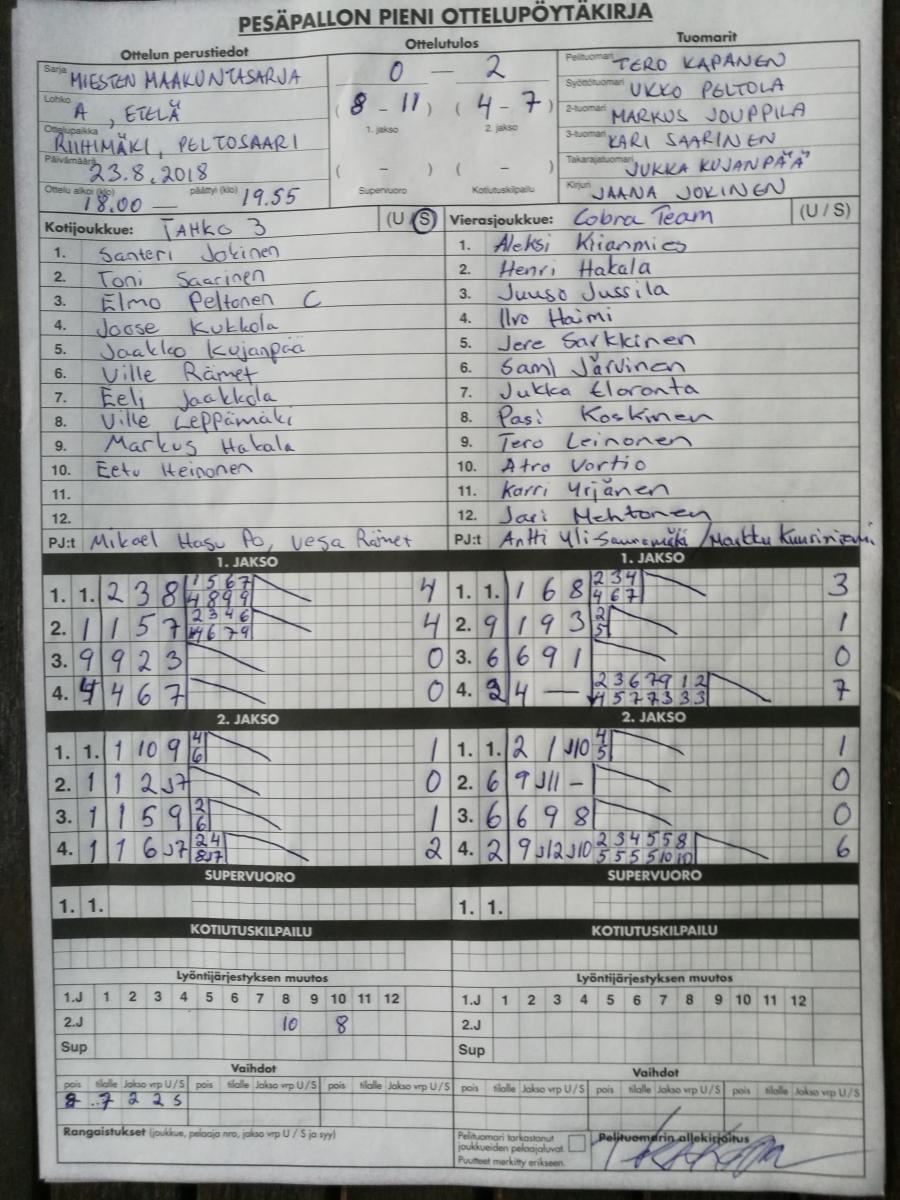 PESÄPALLON PIENI OTTELUPÖYTÄKIRJA
Ottelun perustiedot
Sarja MIESTEN MAAKUNTASARJA
Lohko A, ETELÄ
Ottelupaikka RIIHIMÄKI, PELTOSAARI
Päivämäärä 23.8.2018
Ottelu alkoi (klo) 18.00 — päättyi (klo) 19.55
Ottelutulos
0 — 2
(8 - 11) (4 - 7)
1. jakso 2. jakso
( - ) ( - )
Supervuoro Kotiutuskilpailu
Tuomarit
Pelituomari TERO KAPANEN
Syöttötuomari UKKO PELTOLA
2-tuomari MARKUS JOUPPILA
3-tuomari KARI SAARINEN
Takarajatuomari JUKKA KUJANPÄÄ
Kirjuri JAANA JOKINEN
Kotijoukkue: TAHKO 3 (U / S)
1. Santeri Jokinen
2. Toni Saarinen
3. Elmo Peltonen C
4. Joose Kukkola
5. Jaakko Kujanpää
6. Ville Rämet
7. Eeli Jaakkola
8. Ville Leppämäki
9. Markus Hakala
10. Eetu Heinonen
11.
12.
PJ:t Mikael Hasu Po, Vesa Rämet
Vierasjoukkue: Cobra Team (U / S)
1. Aleksi Kiianmies
2. Henri Hakala
3. Juuso Jussila
4. Ilvo Haimi
5. Jere Sarkkinen
6. Sami Järvinen
7. Jukka Eloranta
8. Pasi Koskinen
9. Tero Leinonen
10. Atro Vartio
11. Karri Yrjänen
12. Jari Mehtonen
PJ:t Antti Yli-
1. JAKSO 1. JAKSO
1. 1. 2 3 8 1 5 6 7 4
4 8 9 9
2. 1 1 5 7 2 3 4 6 4
4 6 7 9
3. 9 9 2 3 0
4. 4 4 6 7 0
1. 1. 1 6 8 2 3 4 3
4 6 7
2. 9 1 9 3 2 1
5
3. 6 6 9 1 0
4. 2 4 — 2 3 6 7 9 1 2 7
4 5 7 7 3 3 3
2. JAKSO 2. JAKSO
1. 1. 1 10 9 4 1
6
2. 1 1 2 J7 0
3. 1 1 5 9 2 1
6
4. 1 1 6 J7 2 4 2
8 J7
1. 1. 2 1 J10 4 1
5
2. 6 9 J11 - 0
3. 6 6 9 8 0
4. 2 9 J12 J10 2 3 4 5 5 8 6
5 5 5 5 10 10
SUPERVUORO SUPERVUORO
1. 1. 1. 1.
KOTIUTUSKILPAILU KOTIUTUSKILPAILU
Lyöntijärjestyksen muutos Lyöntijärjestyksen muutos
1.J 1 2 3 4 5 6 7 8 9 10 11 12 1.J 1 2 3 4 5 6 7 8 9 10 11 12
2.J 10 8 2.J
Sup Sup
Vaihdot Vaihdot
pois tilalle Jakso vrp U/S pois tilalle Jakso vrp U/S pois tilalle Jakso vrp U/S pois tilalle Jakso vrp U/S pois tilalle Jakso vrp U/S pois tilalle Jakso vrp U/S
7 2 2 S
Rangaistukset (joukkue, pelaaja nro, jakso vrp U / S ja syy)
Pelituomari tarkastanut
joukkueiden pelaajaluvat.
Puutteet merkitty erikseen.
Pelituomarin allekirjoitus